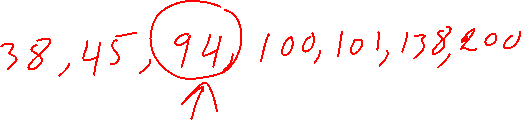 38, 45, 94, 100, 101, 138, 200